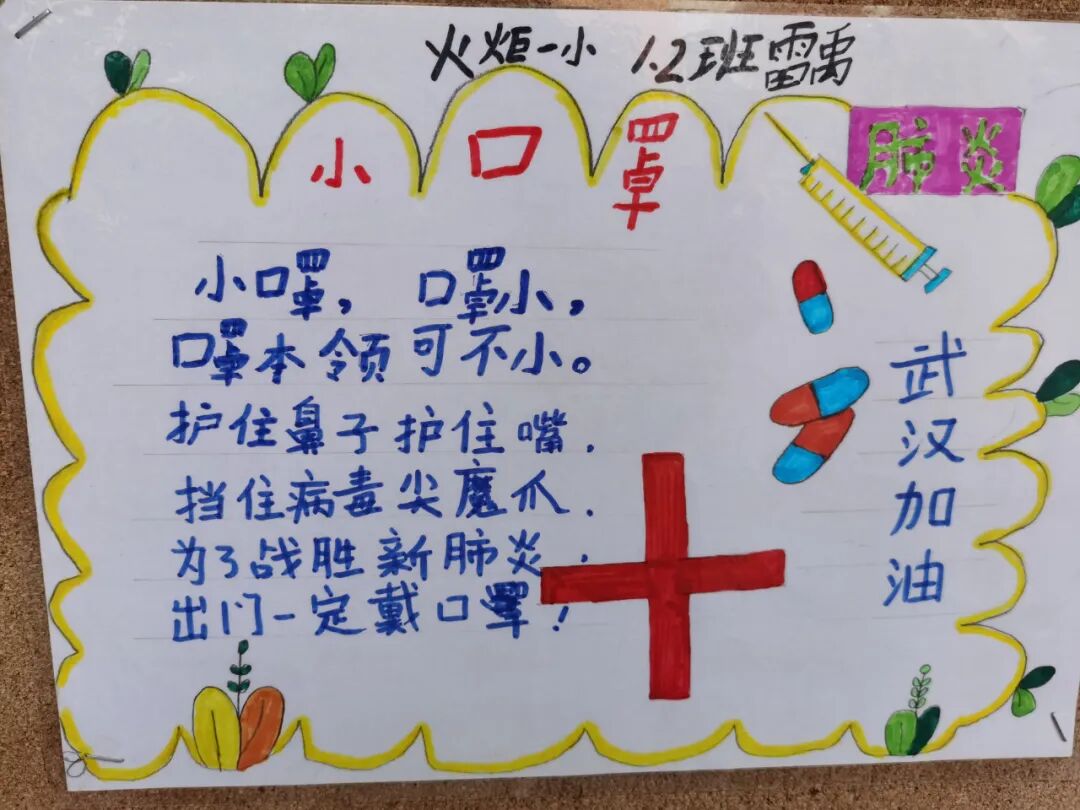 火炬一小 1.2班雷禹
小口罩
肺炎
小口罩， 口罩小，
口罩本领可不小。
护住鼻子护住嘴.
挡住病毒尖魔爪.
为了战胜新肺炎，
出门一定戴口罩！
武汉加油